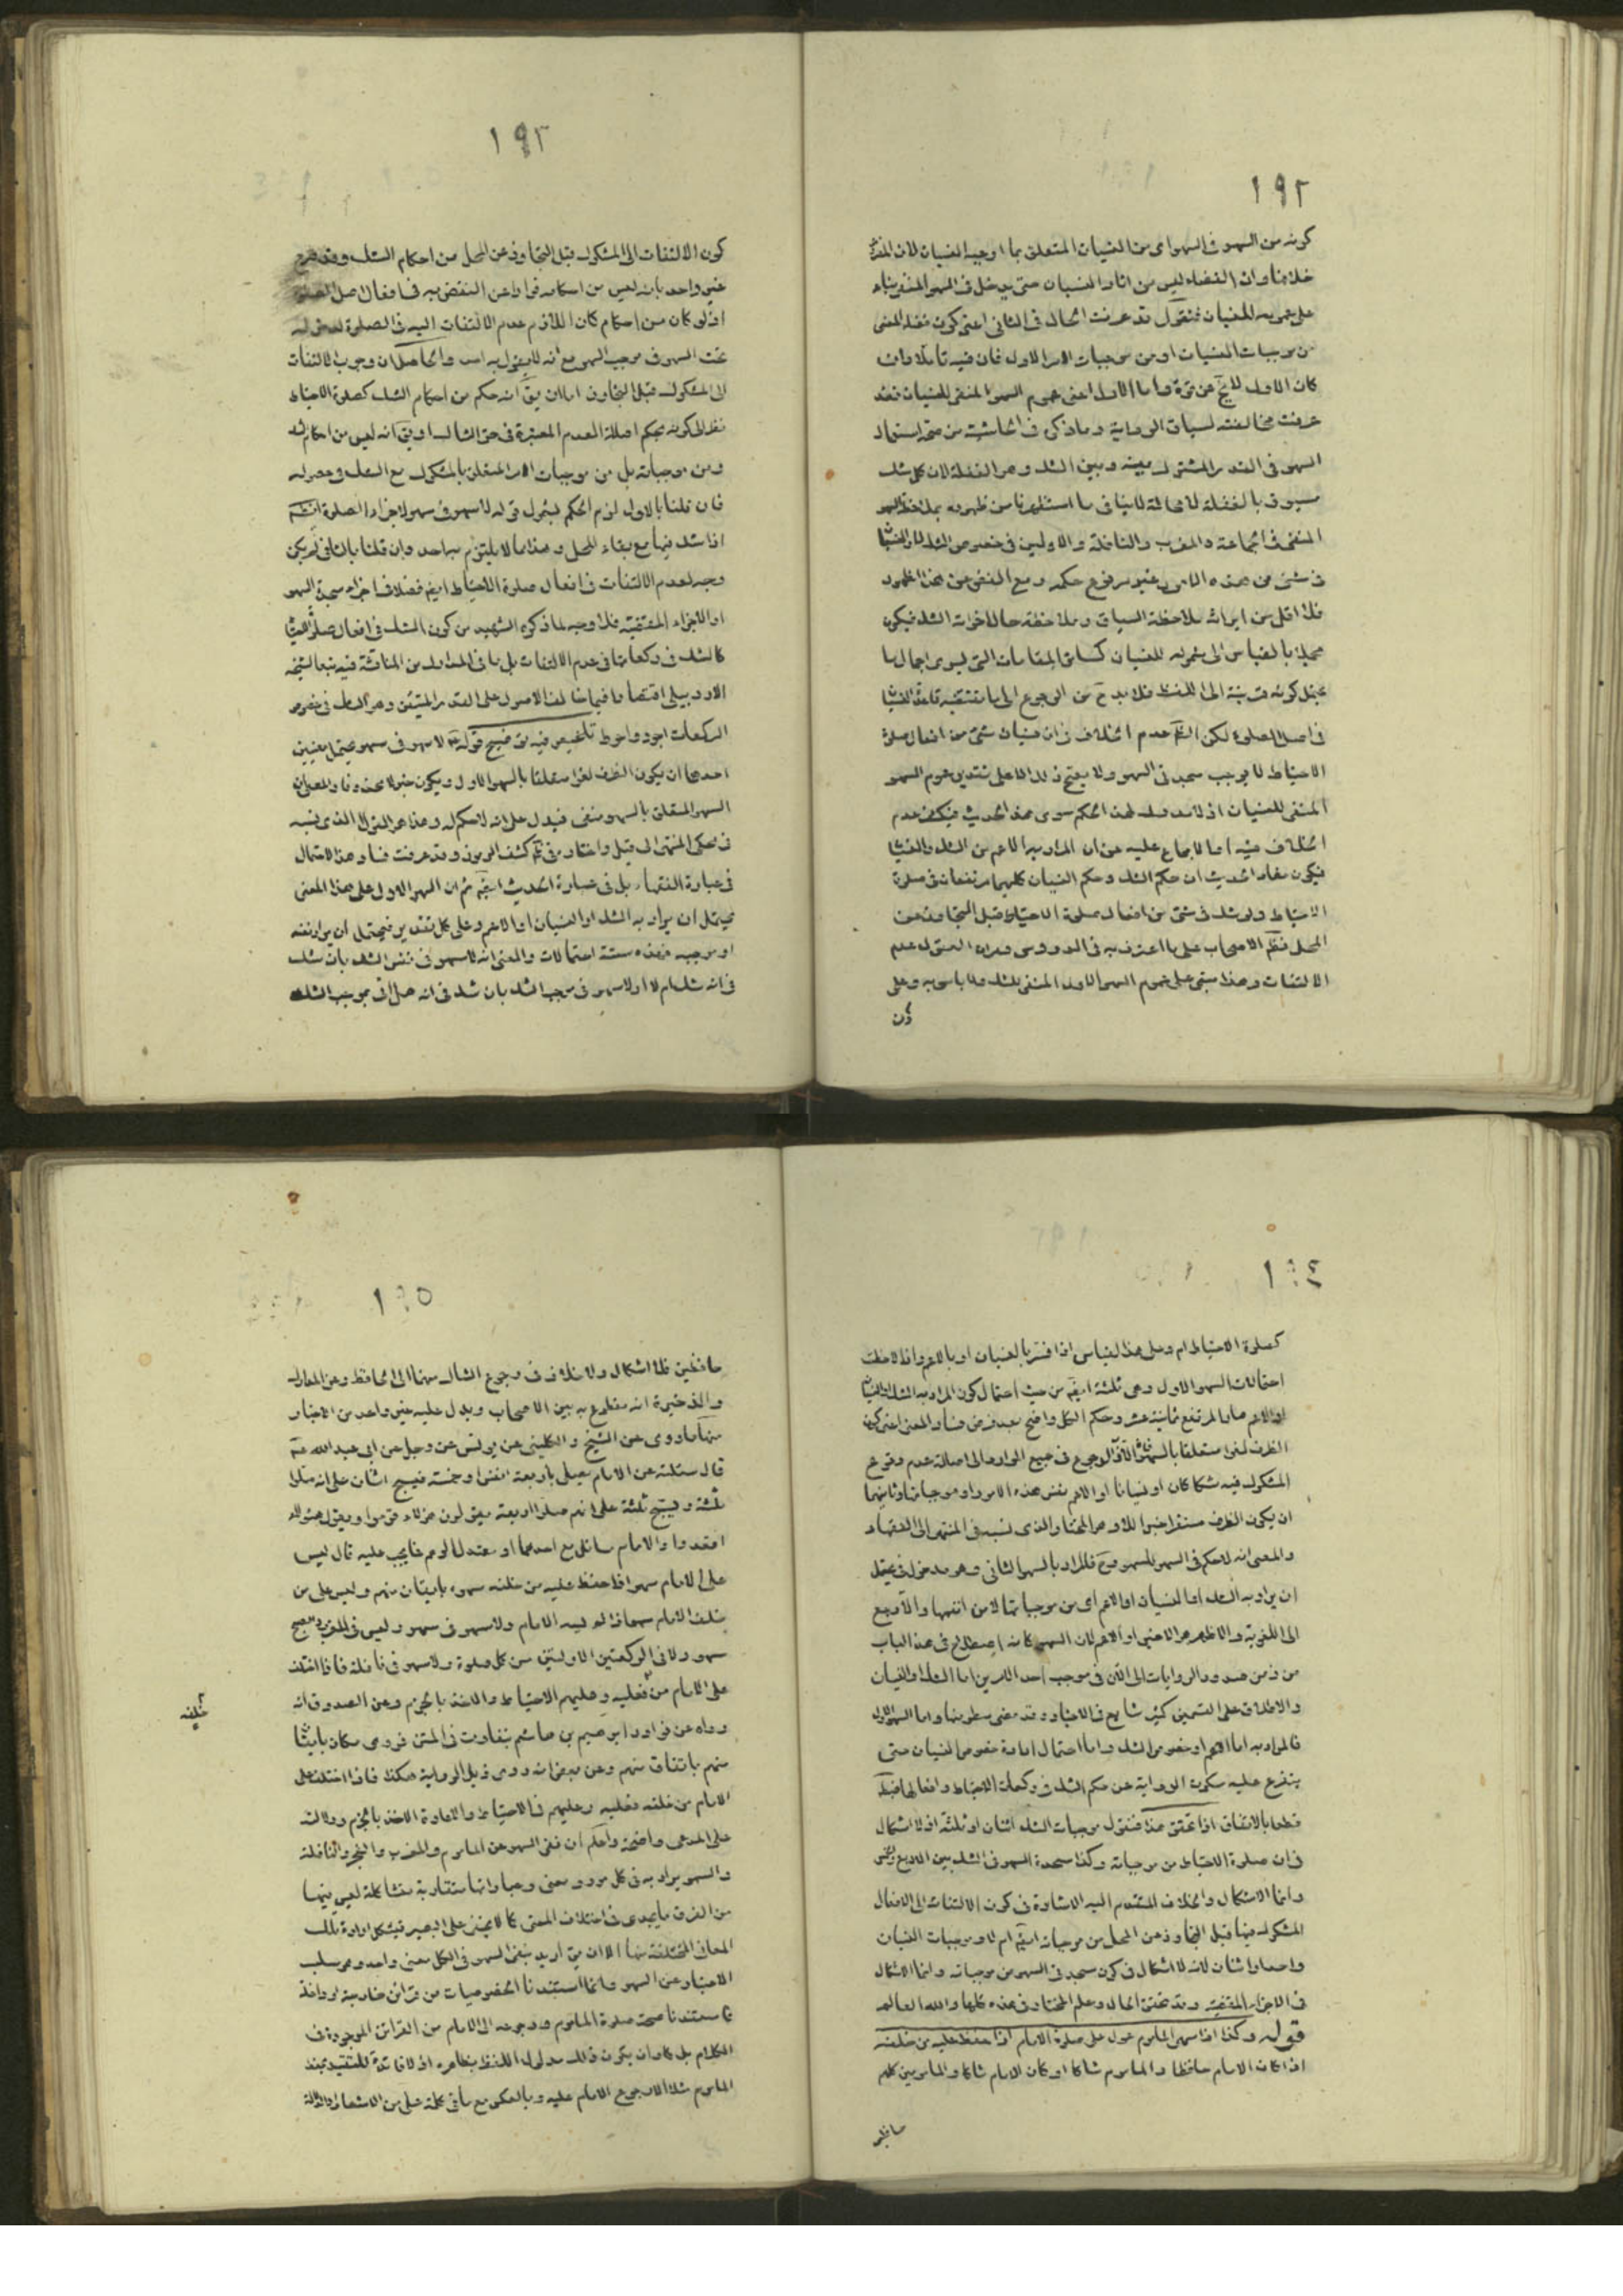 ١٩٢
كونه من السهو في السهو اى من النسيان المتعلق بما اوجبه النسيان لان المفروض
خلافنا وان القضاء ليس من اثار النسيان حتى يدخل في السهو المنفي بناء
على عمومه للنسيان فنقول قد عرفت الحال في الثانى اعنى كون فعل المنسى
من موجبات النسيان او من موجبات الامر الاول فان فيه تأملا وان
كان الاول لا يخ عن قوة واما الاول اعنى عموم السهو المنفى للنسيان فقد
عرفت مخالفته لسياق الرواية وما ذكر فى الحاشية من صحة استعمال
السهو فى القدر المشترك بينه وبين الشك وهو الغفلة لان كل شك
مسبوق بالغفلة لا محالة لا ينافى ما استظهرنا من ظهوره بملاحظة السهو
المنفى فى الجماعة والمغرب والنافلة والاولين فى خصوص الشك
فى شئ من هذه الامور غير مرفوع حكمه ومع الغض عن هذا الظهور
فلا اقل من ايراث ملاحظة السياق وملاحظة حال اخوات الشك فيكون
مجملا بالقياس الى شموله للنسيان كسائر المقامات التى يسرى اجمال ما
يحتمل كونه قرينة الى اللفظ فلا بد ح من الرجوع الى ما تقتضيه قاعدة النسيان
فى اصل الصلوة لكن الظ عدم الخلاف فى ان نسيان شئ من افعال صلوة
الاحتياط لا يوجب سجدتى السهو ولا يصح ذلك الا على تقدير عموم السهو
المنفى للنسيان اذ لا مدرك لهذا الحكم سوى هذا الحديث فيكشف عدم
الخلاف فيه اما الاجماع عليه عن ان المراد به الاعم من الشك والنسيان
فيكون مفاد الحديث ان حكم الشك وحكم النسيان كليهما مرتفعان فى صلوة
الاحتياط ولو شك فى شئ من افعال صلوة الاحتياط قبل التجاوز عن
المحل فظ الاصحاب على ما اعترف به فى الدروس وغيره القول بعدم
الالتفات وهذا مبنى على عموم السهو الاول المنفى للشك ولا باس به وعلى
كون
١٩٣
كون الالتفات الى المشكوك قبل التجاوز عن المحل من احكام الشك وقد صرح
غير واحد بان ليس من احكامه فرارا عن النقض به فى افعال اصل الصلوة
اذ لو كان من احكامه كان اللازم عدم الالتفات اليه فى الصلوة لدخوله
تحت السهو فى موجب السهو مع انه لا يقول به احد والحاصل ان وجوب الالتفات
الى المشكوك قبل التجاوز اما ان يق انه حكم من احكام الشك كصلوة الاحتياط
نظرا الى كونه بحكم اصالة العدم المعتبرة فى حق الشاك او يق انه ليس من احكام الشك
ومن موجباته بل من موجبات الامر المتعلق بالمشكوك مع الشك فى حصوله
فان قلنا بالاول لزم الحكم بشمول قوله لا سهو فى سهو لاجزاء الصلوة
اذا شك فيها مع بقاء المحل وهذا ما لا يلتزم به احد وان قلنا بالثانى لم يكن
وجه لعدم الالتفات فى افعال صلوة الاحتياط ايض فضلا فى اجزاء سجدتى السهو
او الاجزاء المقضية فلا وجه لما ذكره الشهيد من كون الشك فى افعال صلوة الاحتياط
كالشك فى ركعاتها فى عدم الالتفات بل ما فى المدارك من المناقشة فيه تبعا لشيخه
الاردبيلى اقتصارا فيما خالف الاصول على القدر المتيقن وهو الشك فى خصوص
الركعات اجود واحوط تلخيص فيه توضيح قوله ع لا سهو فى سهو يحتمل معنيين
احدهما ان يكون الظرف لغوا متعلقا بالسهو الاول ويكون خبر لا محذوفا والمعنى ان
السهو المتعلق بالسهو منفى فيدل على انه لا حكم له وهذا هو القول الذى نسبه
فى محكى المنتهى الى قيل واختاره فى كشف الرموز وقد عرفت فساد هذا الاحتمال
فى عبارة الفقهاء بل فى عبارة الحديث ايض ثم ان السهو الاول على هذا المعنى
يحتمل ان يراد به الشك او النسيان او الاعم وعلى كل تقدير فيحتمل ان يراد نفسه
او موجبه فهذه ستة احتمالات والمعنى انه لا سهو فى نفس الشك بان شك
فى انه شك ام لا او لا سهو فى موجب الشك بان شك فى انه هل اتى بموجب الشك
١٩٤
كصلوة الاحتياط ام لا وعلى هذا القياس اذا فسر بالنسيان او بالاعم واذا لاحظت
احتمالات السهو الاول وهى ثلثة ايض من حيث احتمال كون المراد به الشك او النسيان
او الاعم صار المرتفع ثمانية عشر وحكم الكل واضح بعد فرض فساد المعنى اعنى كون
الظرف لغوا متعلقا بالسهو الاول الرجوع فى جميع الموارد الى اصالة عدم وقوع
المشكوك فيه شكا كان او نسيانا او الاعم نفس هذه الامور او موجباتها وثانيهما
ان يكون الظرف مستقرا خبرا للا وهو المختار والذى نسبه فى المنتهى الى الفقهاء
والمعنى انه لا حكم فى السهو للسهو وح فالمراد بالسهو الثانى وهو مدخول فى يحتمل
ان يراد به الشك او النسيان او الاعم اى من موجباتها لا من انفسها والا رجع
الى اللغوية والاظهر هو الاخير او الاعم لان السهو كانه اصطلاح فى هذا الباب
من زمن صدور الروايات الى الآن فى موجب احد الامرين اما الشك او النسيان
والاطلاق على القسمين كثير شايع فى الاخبار وقد مضى سطر منها واما السهو الاول
فالمراد به اما الاعم او خصوص الشك واما احتمال ارادة خصوص النسيان حتى
يتفرع عليه سكوت الرواية عن حكم الشك فى ركعات الاحتياط وافعالها فبط
قطعا بالاتفاق اذا تحقق هذا فنقول موجبات الشك اثنان او ثلثة اذ لا اشكال
فى ان صلوة الاحتياط من موجباته وكذا سجدة السهو فى الشك بين الاربع والخمس
وانما الاشكال والخلاف المتقدم اليه الاشارة فى كون الالتفات الى الافعال
المشكوك فيها قبل التجاوز عن المحل من موجباته ايض ام لا وموجبات النسيان
واحد او اثنان لانه لا اشكال فى كون سجدتى السهو من موجباته وانما الاشكال
فى الاجزاء المقضية وقد تحقق الحال وعلم المختار فى هذه كلها والله العالم
قوله وكذا اذا سهى الماموم عول على صلوة الامام اذا حفظ عليه من خلفه
اذا كان الامام حافظا والماموم شاكا او كان الامام شاكا والمامومين كلهم
حافظين
١٩٥
حافظين فلا اشكال ولا خلاف فى رجوع الشاك منهما الى الحافظ وعن المدارك
والذخيرة انه مقطوع به بين الاصحاب ويدل عليه غير واحد من الاخبار
منها ما روى عن الشيخ والكلينى عن يونس عن رجل عن ابى عبد الله ع
قال سئلته عن الامام يصلى باربعة انفس او خمسة فيسبح اثنان على انه صلوا
ثلثة ويسبح ثلثة على انهم صلوا اربعة يقولون هؤلاء قوموا ويقول هؤلاء
اقعدوا والامام مائل مع احدهما او معتدل الوهم فما يجب عليه قال ليس
على الامام سهو اذا حفظ عليه من خلفه سهوه بايقان منهم وليس على من
خلف الامام سهو اذا لم يسه الامام ولا سهو فى سهو وليس فى المغرب والصبح
سهو ولا فى الركعتين الاولتين من كل صلوة ولا سهو فى نافلة فاذا اختلف
على الامام من فعليه وعليهم الاحتياط والاخذ بالجزم وعن الصدوق انه
خلفه
رواه عن نوادر ابراهيم بن هاشم بتفاوت فى المتن فروى مكان بايقان
منهم باتفاق منهم وعن بعض انه روى ذيل الرواية هكذا فاذا اختلف على
الامام من خلفه فعليه وعليهم فى الاحتياط والاعادة الاخذ بالجزم ودلالته
على المدعى واضحة واعلم ان نفى السهو عن الماموم والمغرب والفجر والنافلة
والسهو يراد به فى كل مورد معنى وعباراتها متقاربة متشاكلة ليس بينها
من الفرق ما يجدى فى اختلاف المعنى كما لا يخفى على البصير فيشكل ارادة تلك
المعانى المختلفة منها الا ان يق اريد بنفى السهو فى الكل معنى واحد وهو سلب
الاعتبار عن السهو وانما استفدنا الخصوصيات من قرائن خارجية او داخلة
كما استفدنا صحة صلوة الماموم ورجوعه الى الامام من القرائن الموجودة فى
الكلام بل كاد ان يكون ذلك مدلول اللفظ بظاهره اذ لا فائدة للتقييد بعدد
الماموم شك الا رجوع الامام عليه وبالعكس مع ما فى كلمة على من الاشعار والدلالة